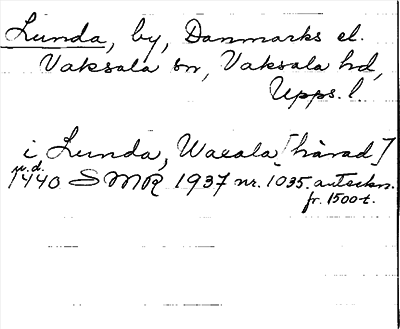 Lunda, by, Danmarks el.
Vaksala sn, Vaksala hd,
Upps. l.
i Lunda, Waxala [härad]
u.d.
1440 SMR 1937 nr. 1035. anteckn.
fr. 1500-t.